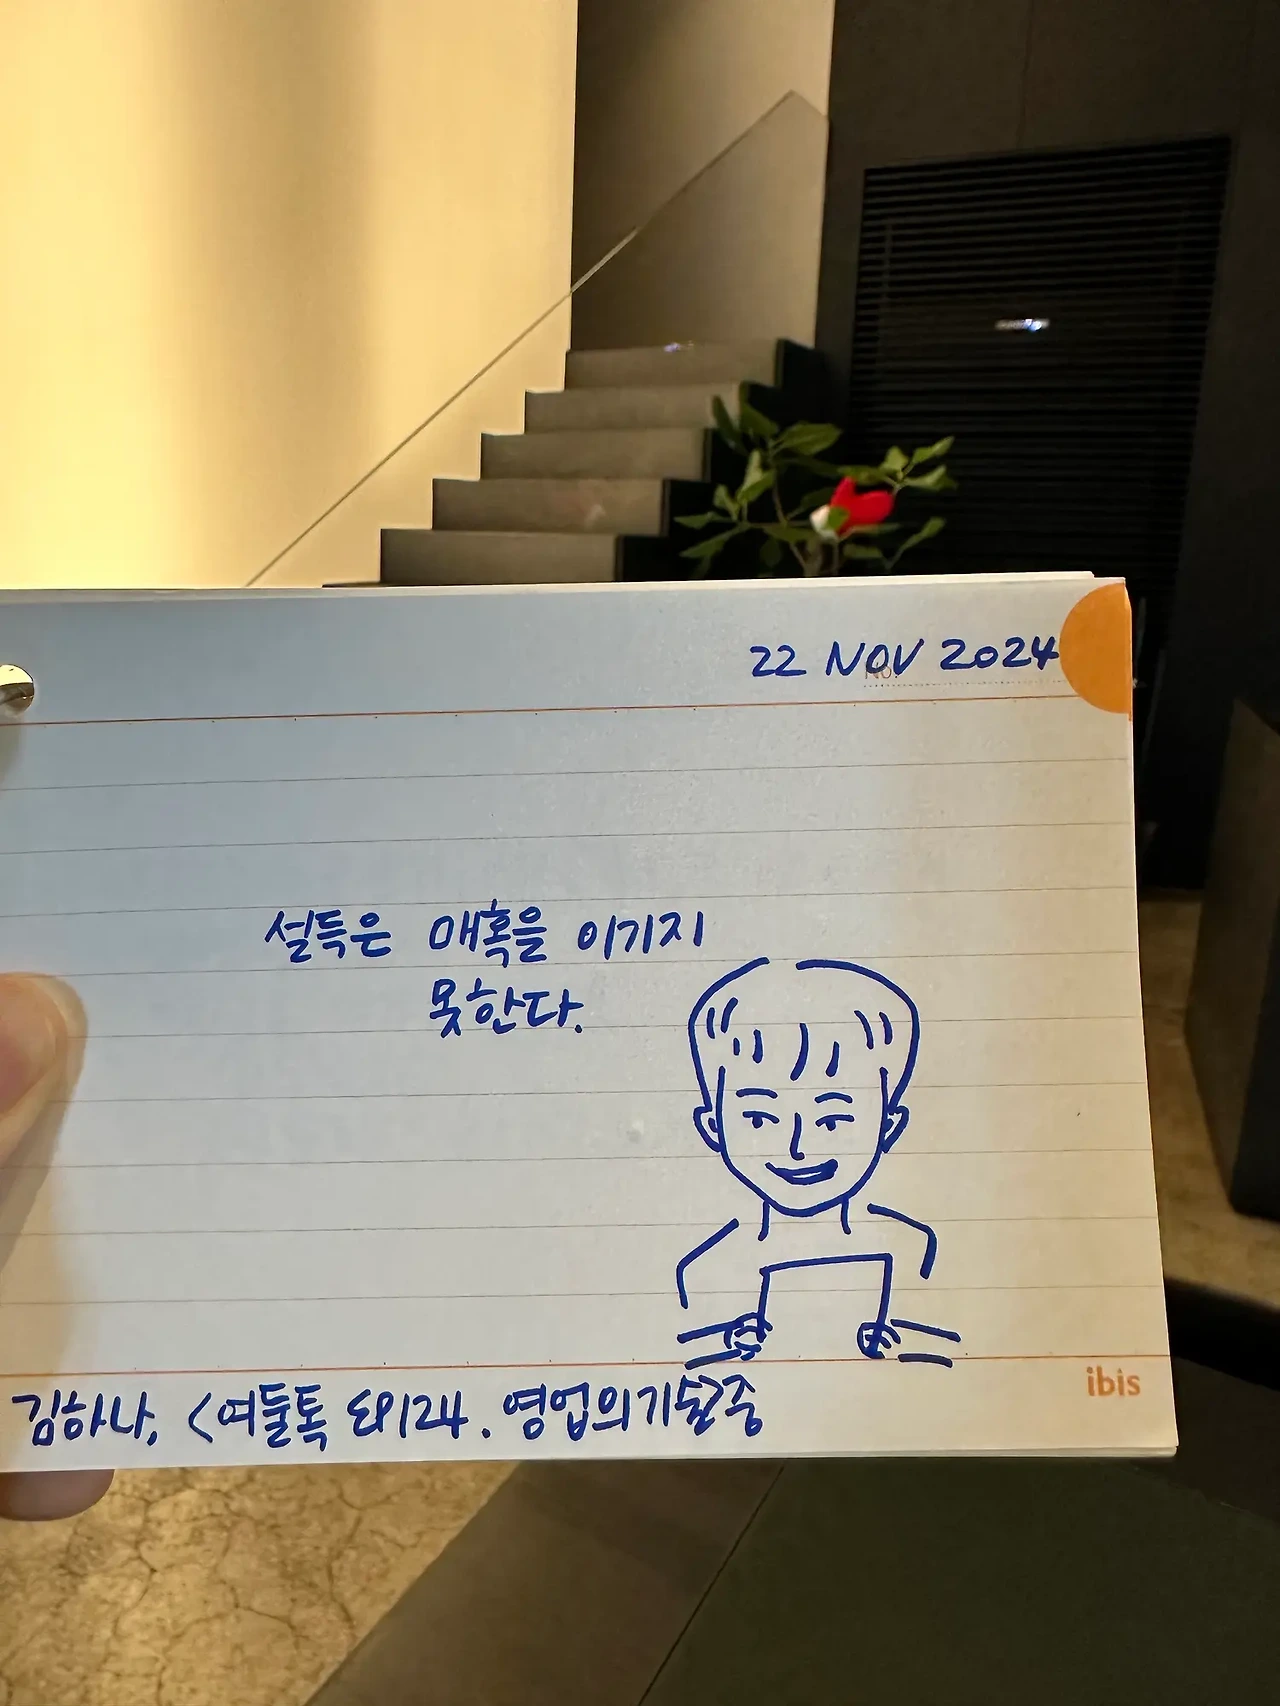 22 NOV 2024
No.
설득은 매혹을 이기지
못한다.
ibis
김하나, <여둘톡 EP124. 영업의기술> 중